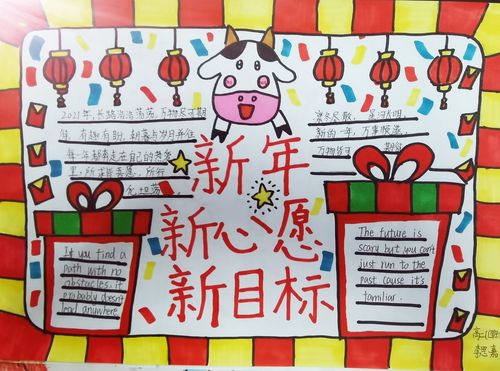 2021年，长路浩浩荡荡，万物尽可期
待，有趣有盼，朝暮与岁月并行
每一年都奔走在自己的热爱
里，所
凛冬尽散，星河长明，
新的一年，万事顺遂，
万物皆可期待
新年
新心愿
新目标
If you find a
path with no
obstacles. it
probably doesn't
lead anywhere.
The future is
scary but you can't
just run to the
past cause it's
familiar.
高二
李思嘉